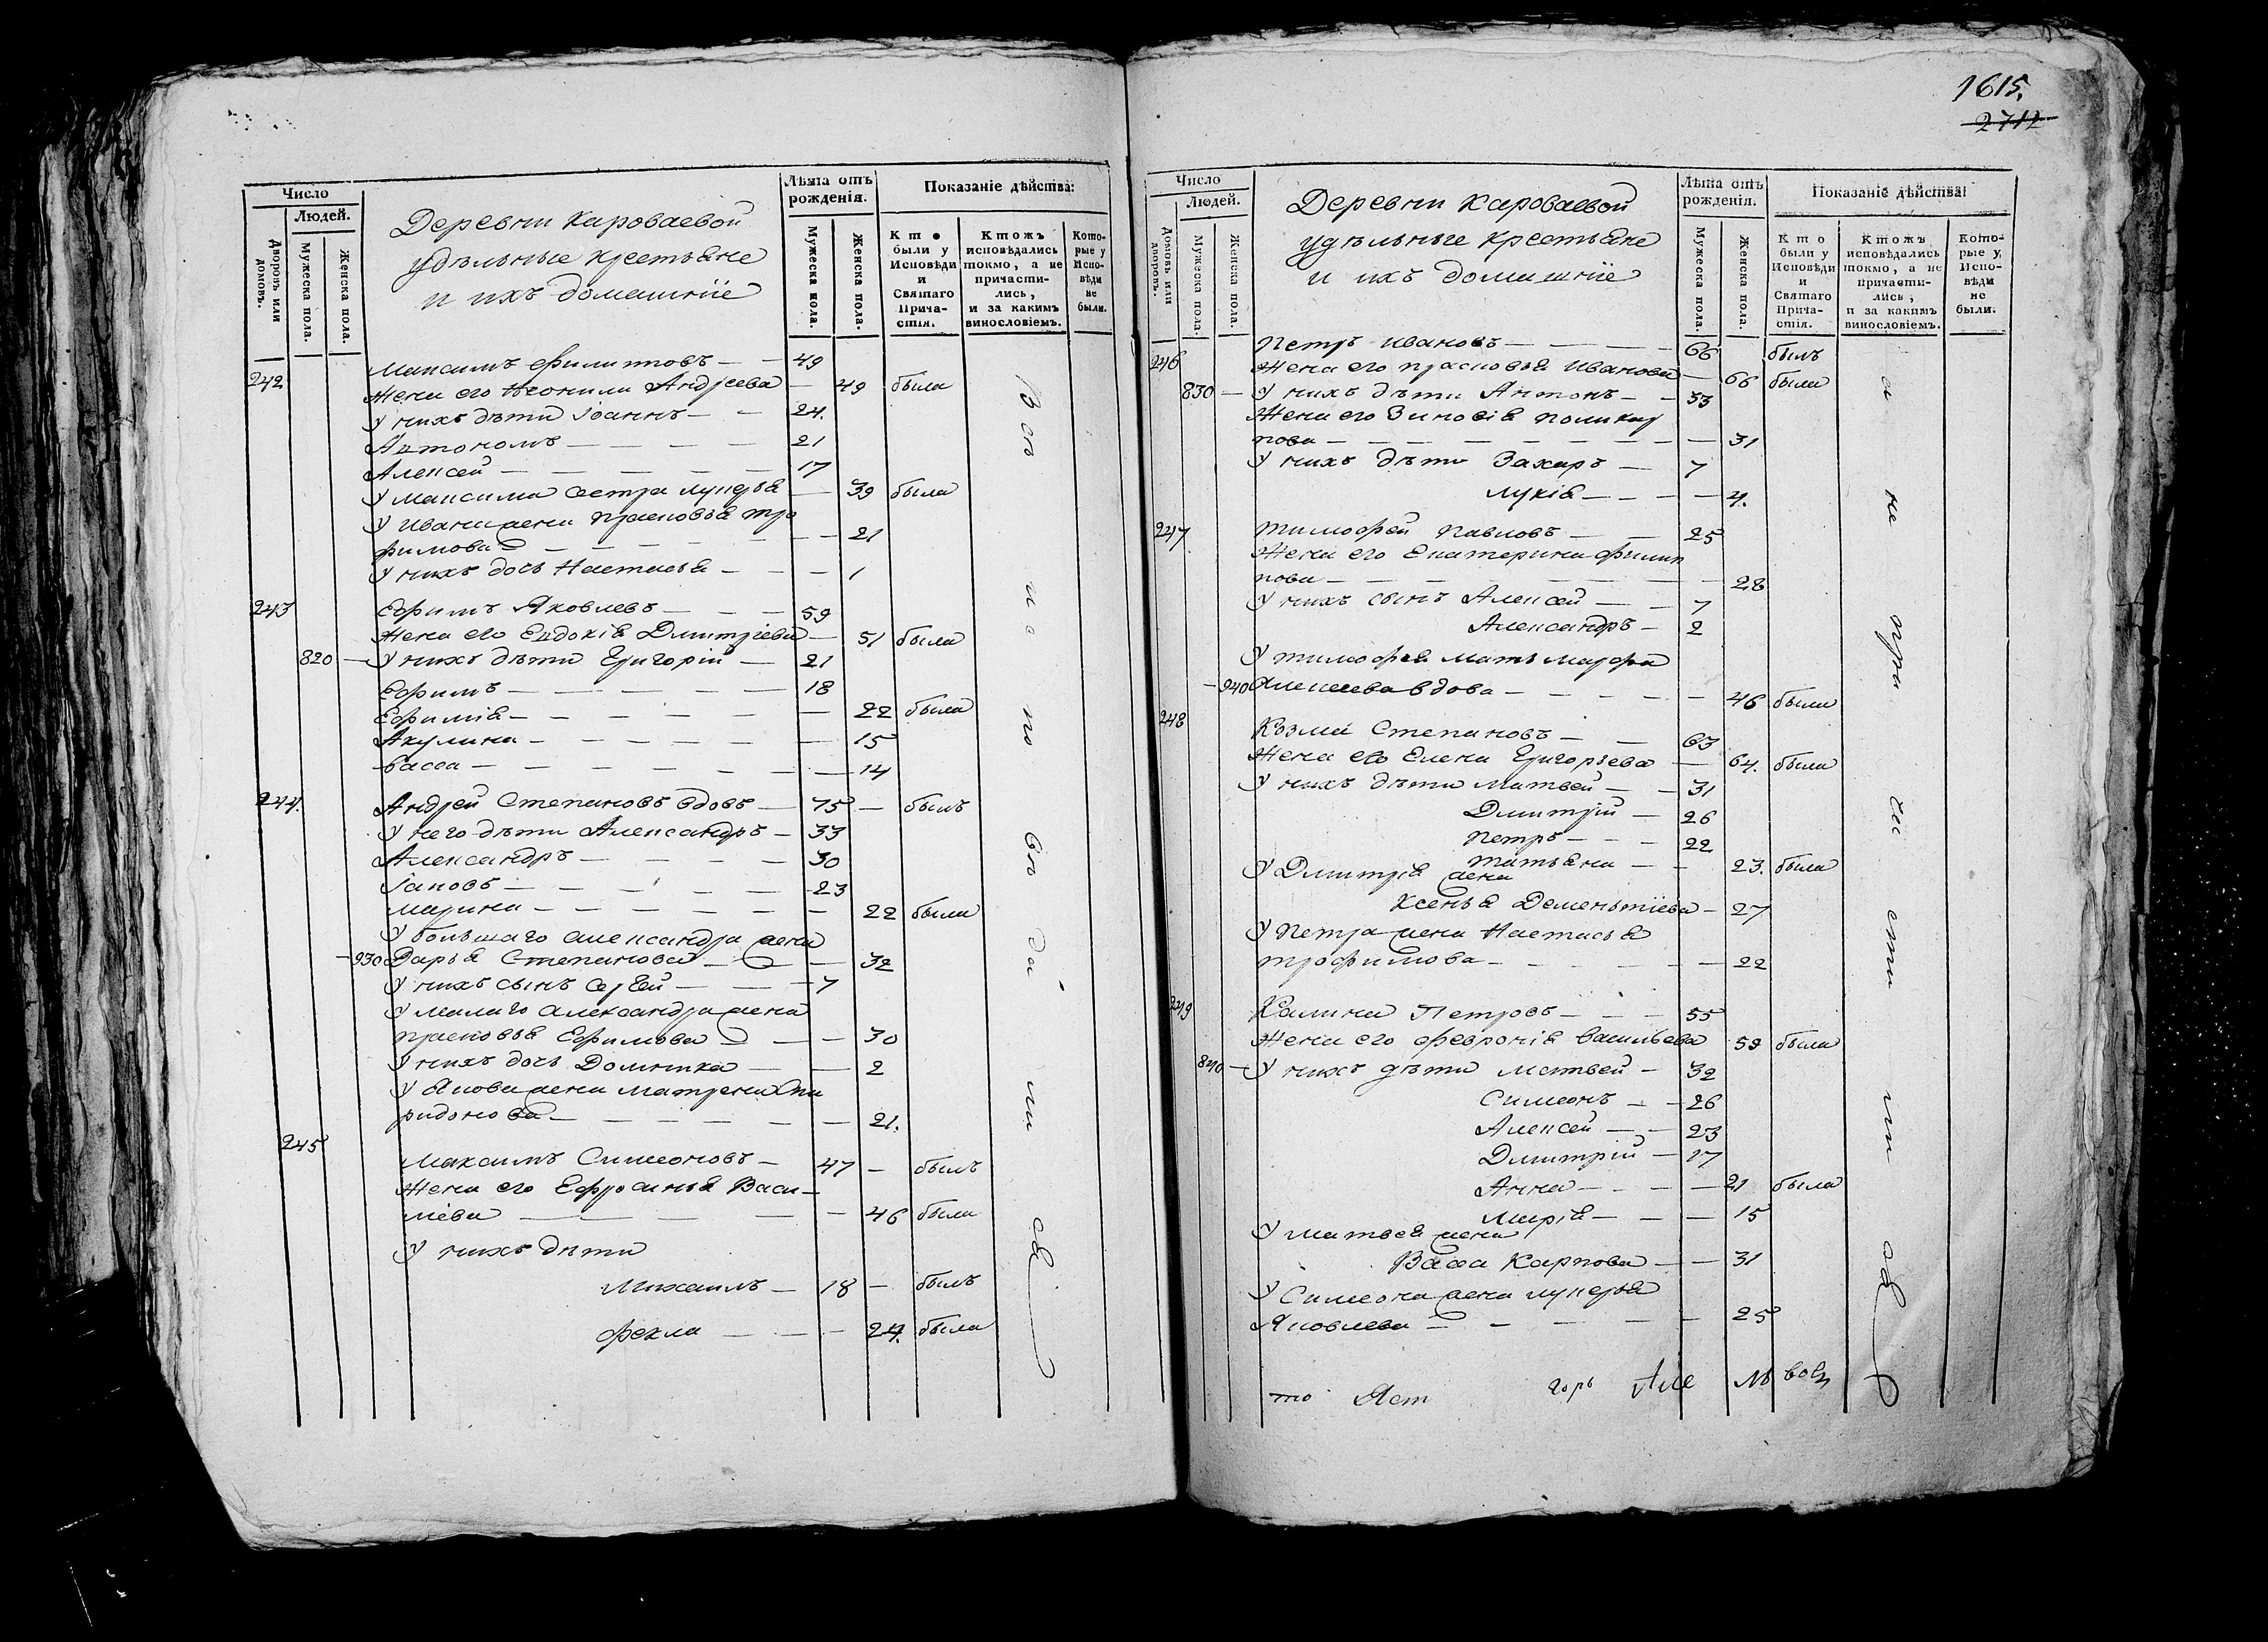 1615.
2712
Число
Людей.
Дворовъ или домовъ.
Мужеска пола.
Женска пола.
Деревни Кароваевой
удѣльные крестьяне
и ихъ домашніе
Лѣта отъ рожденія.
Мужеска пола.
Женска пола.
Показаніе дѣйства:
Кто были у Исповѣди и Святаго Причастія.
Ктожъ исповѣдались токмо, а не причастились, и за какимъ винословіемъ.
Которые у Исповѣди не были.
242 Максимъ Филипповъ — — 49
Жена его Неонила Андреева — 49 была
У нихъ дѣти Іоаннъ — — 24.
Автономъ — — — — 21
Алексей — — — — — 17
У Максима сестра Лукерья — 39 была
У Ивана жена Прасковья Тро
фимова — — — — — 21
У нихъ дочь Настасья — — — 1
243 Ефимъ Яковлевъ — — — 59
Жена его Евдокія Дмитріева — 51 была
820 — У нихъ дѣти Григорій — 21
Ефимъ — — — — — 18
Ефимія — — — — — — 22 была
Акулина — — — — — — 15
Васса — — — — — — — 14
244. Андрей Степановъ вдовъ — 75 — былъ
У него дѣти Александръ — 33
Александръ — — — — 30
Іаковъ — — — — — 23
Марина — — — — — — 22 была
У большаго Александра жена
930 Дарья Степанова — — — 32
У нихъ сынъ Сергей — — — 7
У малаго Александра жена
Прасковья Ефимова — — — 30
У нихъ дочь Домника — — 2
У Якова жена Матрена Спи
ридонова — — — — — — 21.
245 Максимъ Симеоновъ — 47 — былъ
Жена его Ефросинья Васи—
лева — — — — — 46 была
У нихъ дѣти
Михаилъ — 18 — былъ
Фекла — — — 24. была
Всѣ исповѣдались
Число
Людей.
Дворовъ или домовъ.
Мужеска пола.
Женска пола.
Деревни Кароваевой
удѣльные крестьяне
и ихъ домашніе
Лѣта отъ рожденія.
Мужеска пола.
Женска пола.
Показаніе дѣйства:
Кто были у Исповѣди и Святаго Причастія.
Ктожъ исповѣдались токмо, а не причастились, и за какимъ винословіемъ.
Которые у Исповѣди не были.
246 Петръ Ивановъ — — — — 66 былъ
Жена его Прасковья Иванова — 66 была
830 — У нихъ дѣти Антонъ — — 33
Жена его Зиновія Поликар
пова — — — — — — — — 31
У нихъ дѣти Захаръ — 7
Лукія — — — — 4.
247 Тимофей Павловъ — — 25
Жена его Екатерина Филип
пова — — — — — — — 28
У нихъ сынъ Алексей — — 7
Александръ — 2
У Тимофея мать Марфа
940 Алексеева вдова — — — — — 46 была
248 Козма Степановъ — — 63
Жена его Елена Григорьева — 64. была
У нихъ дѣти Матвей — — 31
Дмитрій — 26
Петръ — — — 22
Татьяна — — 23. была
У Дмитрія жена
Ксенья Дементіева — 27
У Петра жена Настасья
Трофимова — — — — — — 22
249 Калина Петровъ — — — 55
Жена его Февронія Васильева 59 была
840 — У нихъ дѣти Матвей — 32
Симеонъ — — 26
Алексей — — 23
Дмитрій — 17
Анна — — — — 21 была
Марія — — — 15
У Матвея жена
Васса Карпова — — 31
У Симеона жена Лукерья
Яковлева — — — — — 25
а не причастились